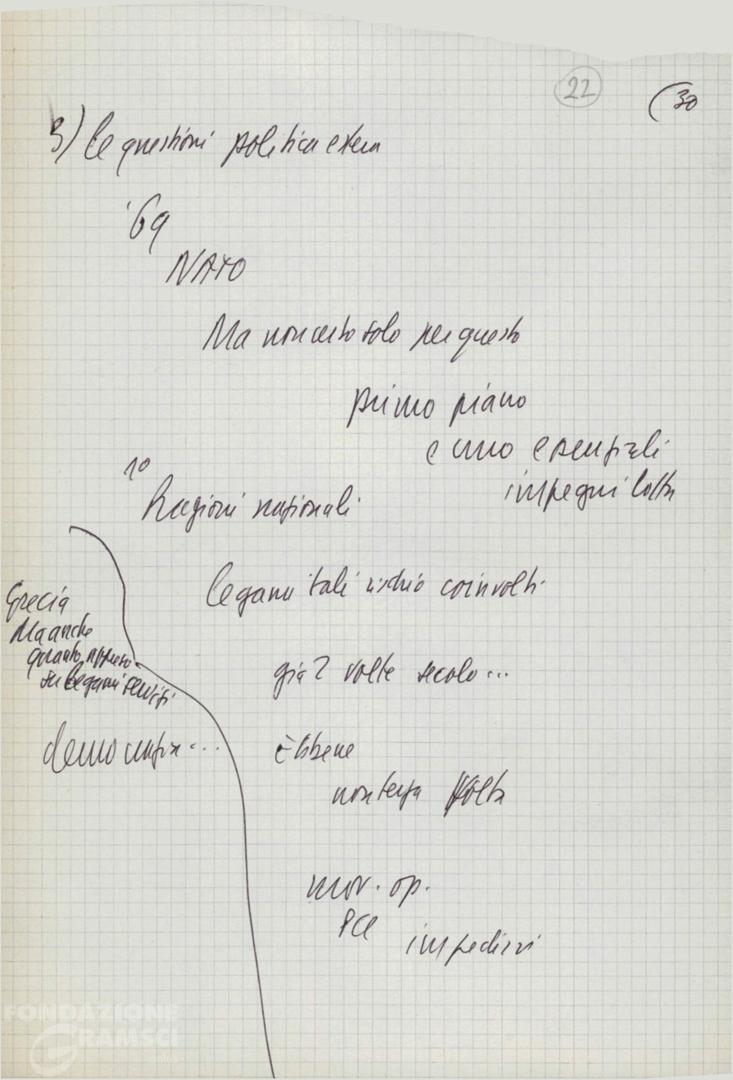 22
(30
3) le questioni politica estera
'69
NATO
Ma non certo solo per questo
primo piano
e uno essenziali
impegni lotta
1º
Ragioni nazionali
legami tali rischio coinvolti
già 2 volte secolo...
Ebbene
non terza volta
mov. op.
PCI
impedirvi
Grecia
Ma anche
quanto appreso
su legami servizi
democrazia...
FONDAZIONE
GRAMSCI